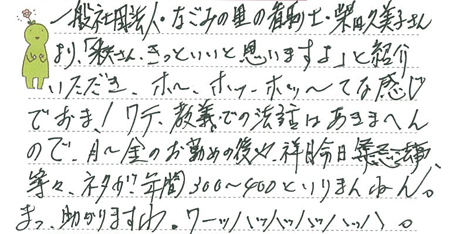 一般社団法人・なごみの里の看取士・柴田久美子さん
より、「秋さん、きっといいと思いますよ」と紹介
いただき、ホー、ホッーホッ〜てな感じ
でおま！ワテ、教義での法話はあきまへん
ので、月〜金のお勤めの後や、祥月命日
等々、ネタが！年間300〜400といりまんねん。
まっ、助かりますわ。ワーッハッハッハッハッハ。